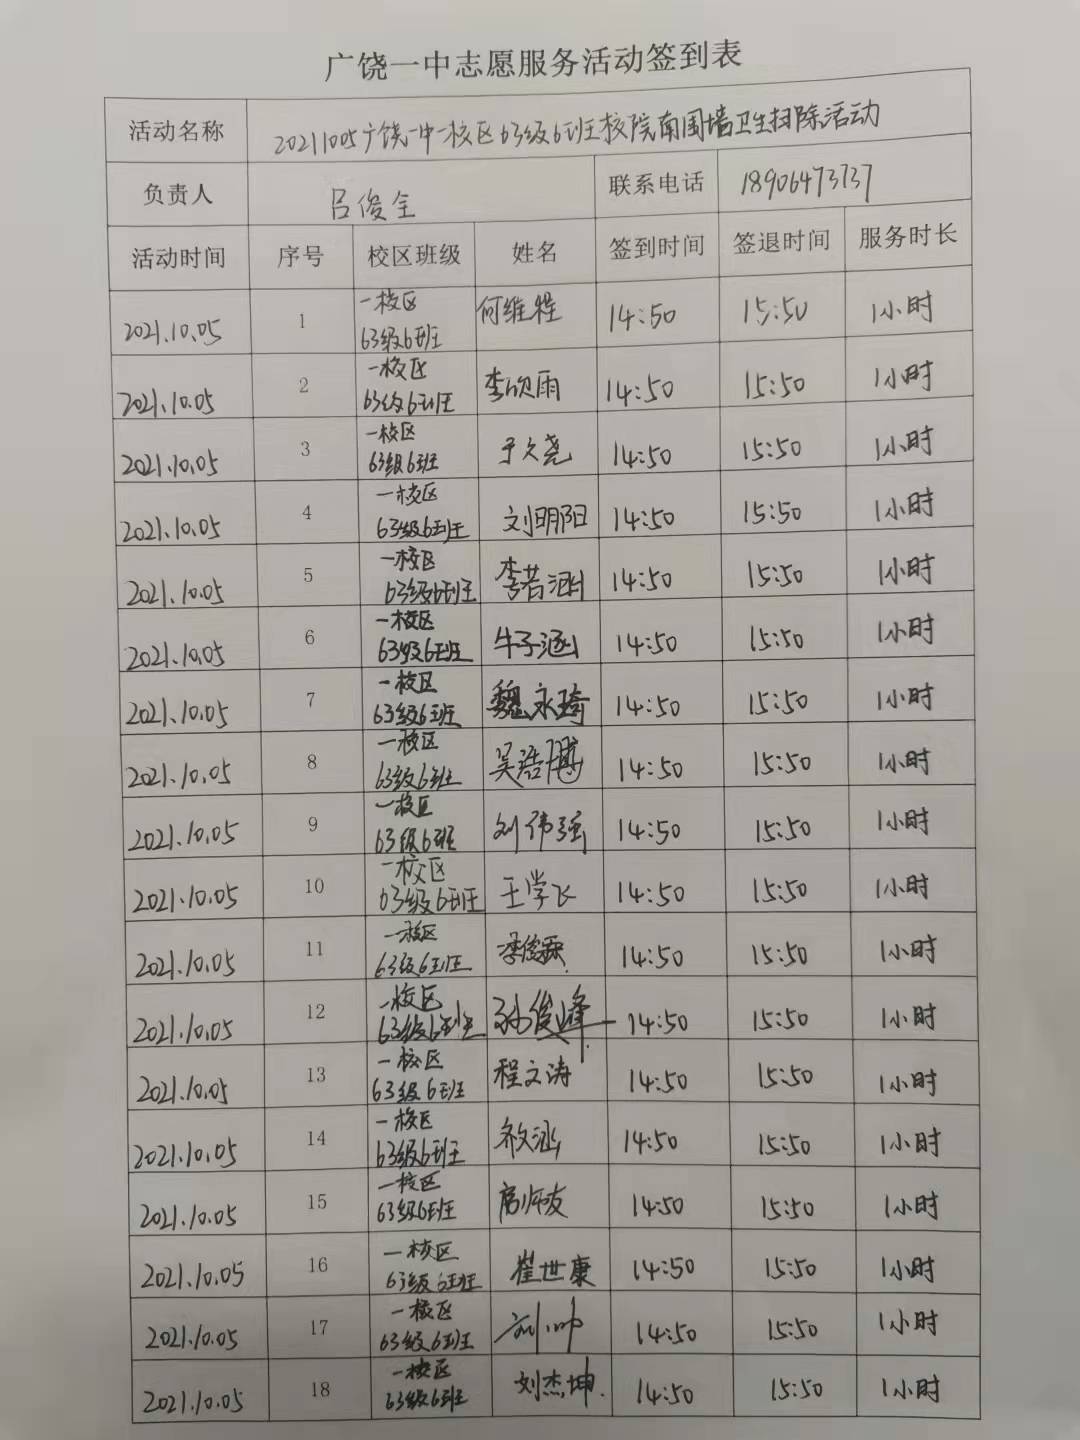 广饶一中志愿服务活动签到表
活动名称 20211005广饶一中一校区63级6班校院南围墙卫生扫除活动
负责人 吕俊全 联系电话 18906473737
活动时间 序号 校区班级 姓名 签到时间 签退时间 服务时长
2021.10.05 1 一校区 63级6班 何维程 14:50 15:50 1小时
2021.10.05 2 一校区 63级6班 李欣雨 14:50 15:50 1小时
2021.10.05 3 一校区 63级6班 于久尧 14:50 15:50 1小时
2021.10.05 4 一校区 63级6班 刘明阳 14:50 15:50 1小时
2021.10.05 5 一校区 63级6班 李若涵 14:50 15:50 1小时
2021.10.05 6 一校区 63级6班 牛子涵 14:50 15:50 1小时
2021.10.05 7 一校区 63级6班 魏永琦 14:50 15:50 1小时
2021.10.05 8 一校区 63级6班 吴浩博 14:50 15:50 1小时
2021.10.05 9 一校区 63级6班 刘伟强 14:50 15:50 1小时
2021.10.05 10 一校区 63级6班 王学飞 14:50 15:50 1小时
2021.10.05 11 一校区 63级6班 14:50 15:50 1小时
2021.10.05 12 一校区 63级6班 孙俊峰 14:50 15:50 1小时
2021.10.05 13 一校区 63级6班 程文涛 14:50 15:50 1小时
2021.10.05 14 一校区 63级6班 14:50 15:50 1小时
2021.10.05 15 一校区 63级6班 14:50 15:50 1小时
2021.10.05 16 一校区 63级6班 崔世康 14:50 15:50 1小时
2021.10.05 17 一校区 63级6班 刘帅 14:50 15:50 1小时
2021.10.05 18 一校区 63级6班 刘杰坤 14:50 15:50 1小时